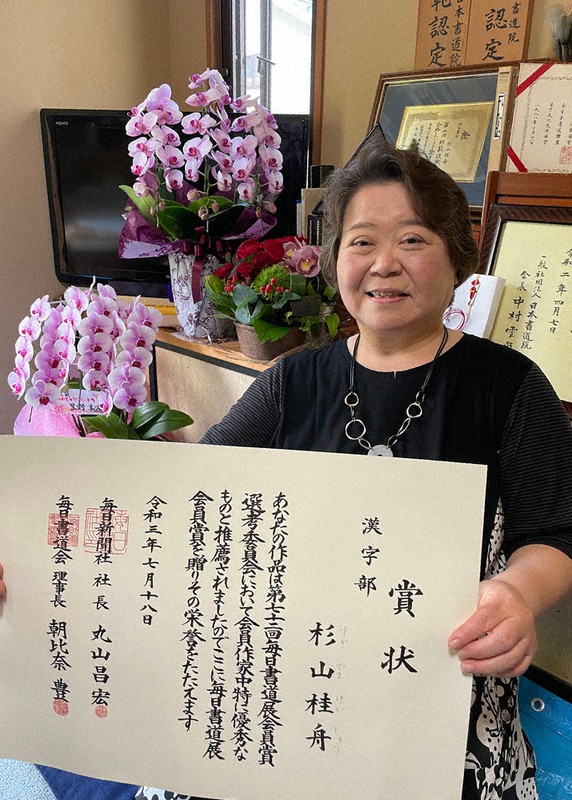 賞状
漢字部
杉山桂舟
すぎ やま けい しゅう
あなたの作品は第七十二回毎日書道展会員賞
選考委員会において会員作家中特に優秀な
ものと推薦されましたのでここに毎日書道展
会員賞を贈りその栄誉をたたえます
令和三年七月十八日
毎日新聞社 社長 丸山昌宏
毎日書道会 理事長 朝比奈 豊
日本書道院
認定
認定
令和二年四月七日
一般社団法人日本書道院
会長 中村雲